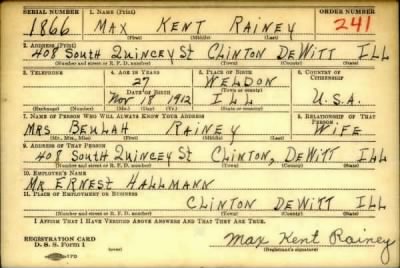 SERIAL NUMBER 1. NAME (Print) ORDER NUMBER
1866 MAX KENT RAINEY 241
(First) (Middle) (Last)
2. ADDRESS (Print)
408 SOUTH QUINCEY ST CLINTON DEWITT ILL
(Number and street or R. F. D. number) (Town) (County) (State)
3. TELEPHONE 4. AGE IN YEARS 5. PLACE OF BIRTH 6. COUNTRY OF CITIZENSHIP
27 WELDON
(Town or county)
DATE OF BIRTH
NOV 18, 1912 ILL U.S.A.
(Exchange) (Number) (Mo.) (Day) (Yr.) (State or country)
7. NAME OF PERSON WHO WILL ALWAYS KNOW YOUR ADDRESS 8. RELATIONSHIP OF THAT PERSON
MRS BEULAH RAINEY WIFE
(Mr., Mrs., Miss) (First) (Middle) (Last)
9. ADDRESS OF THAT PERSON
408 SOUTH QUINCEY ST CLINTON, DEWITT ILL
(Number and street or R. F. D. number) (Town) (County) (State)
10. EMPLOYER'S NAME
MR ERNEST HALLMANN
11. PLACE OF EMPLOYMENT OR BUSINESS
CLINTON DEWITT ILL
(Number and street or R. F. D. number) (Town) (County) (State)
I AFFIRM THAT I HAVE VERIFIED ABOVE ANSWERS AND THAT THEY ARE TRUE.
REGISTRATION CARD
D. S. S. Form 1
Max Kent Rainey
(Registrant's signature)